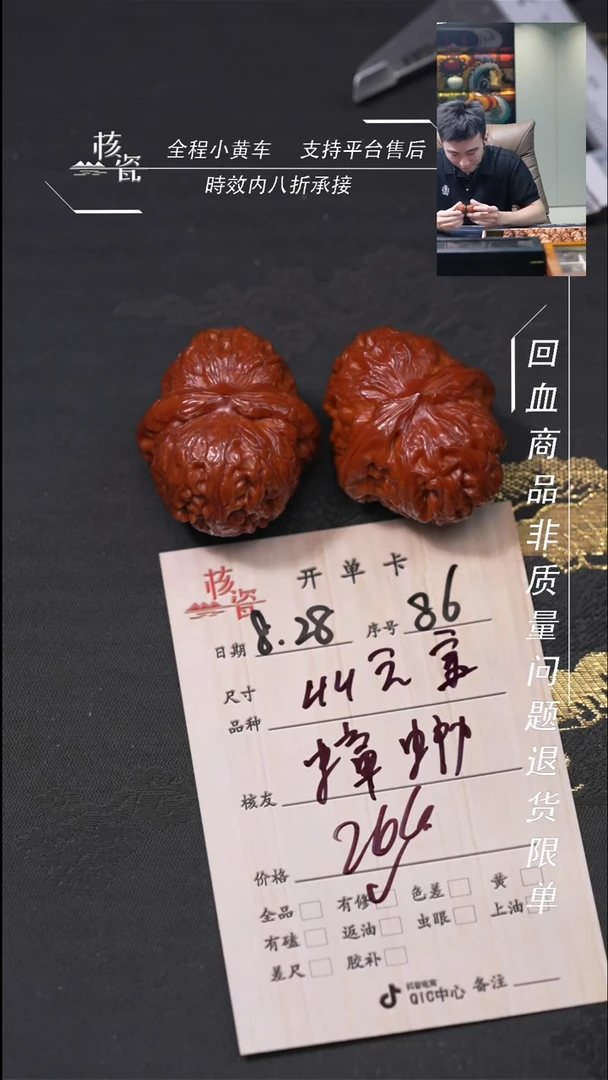 核瓷
全程小黄车 支持平台售后
時效内八折承接
回血商品非质量问题退货限单
核瓷
开单卡
日期 8.28 序号 86
尺寸
品种 44
核友
价格 264
全品 有修 色差 黄
有磕 返油 虫眼 上油
差尺 胶补
抖音电商
QIC中心 备注